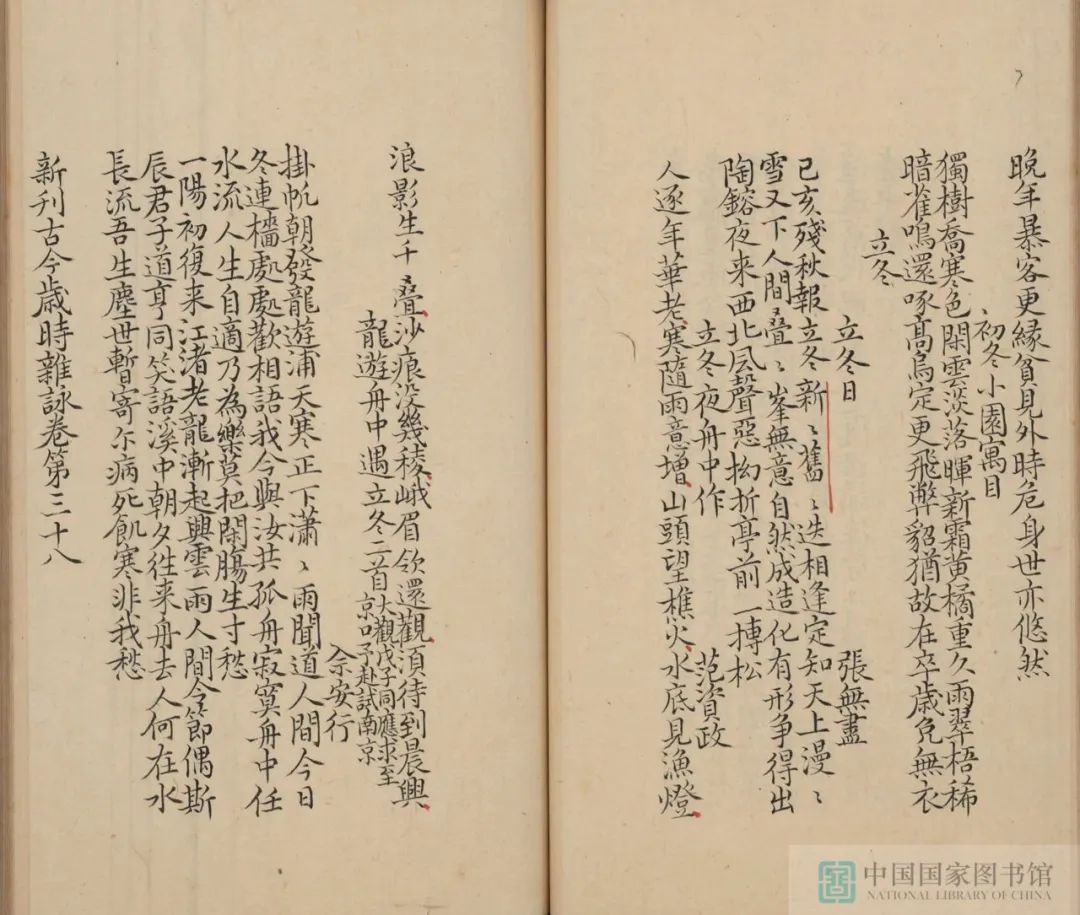 晚年暴客更縁貧見外時危身世亦悠然
初冬小園寓目
獨樹喬寒色閑雲淡落暉新霜黄橘重久雨翠梧稀
暗雀鳴還啄髙烏定更飛弊貂猶故在卒歳免無衣
立冬
立冬日 張無盡
己亥殘秋報立冬新〻舊〻迭相逢定知天上漫〻
雪又下人間疊〻峯無意自然成造化有形争得出
陶鎔夜来西北風聲惡拗折亭前一搏松
立冬夜舟中作 范資政
人逐年華老寒隨雨意增山頭望樵火水底見漁燈
浪影生千疊沙痕没幾稜峨眉欲還觀湏待到晨興
龍遊舟中遇立冬二首大觀戊子同應求至京口予赴試南京
佘安行
掛帆朝發龍遊浦天寒正下瀟〻雨聞道人間今日
冬連檣處處歡相語我今與汝共孤舟寂寞舟中任
水流人生自適乃為樂莫把閑腸生寸愁
一陽初復来江渚老龍漸起興雲雨人間令節偶斯
辰君子道亨同笑語溪中朝夕往来舟去人何在水
長流吾生塵世暫寄尓病死飢寒非我愁
新刊古今歳時雜詠卷第三十八
中国国家图书馆
NATIONAL LIBRARY OF CHINA